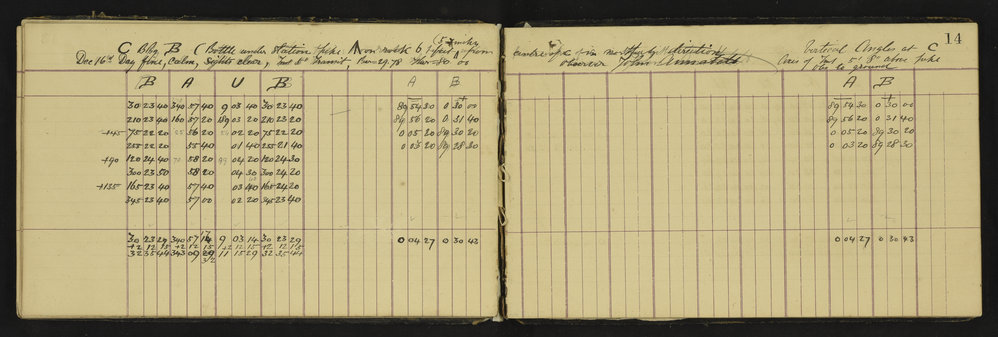 C Bbg B (Bottle under station spike on rock 6 feet from
(5 inches)
Dec 16th Day fine, Calm, Sights clear, Inst 6" Transit, Bar = 29.78 Ther = 80° 00
B A U B A B
30 23 40 340 57 40 9 03 40 30 23 40 89 54 30 0 30 00
210 23 40 160 57 20 189 03 20 210 23 20 89 56 20 0 31 40
+45 75 22 20 56 20 02 20 75 22 20 0 05 20 89 30 20
255 22 20 55 40 01 40 255 21 40 0 03 20 89 28 30
+90 120 24 40 70 58 20 99 04 20 120 24 30
300 23 50 58 20 04 30 300 24 20
+135 165 23 40 57 40 03 40 165 24 20
345 23 40 57 00 02 20 345 23 40
30 23 29 340 57 14 9 03 14 30 23 29 0 04 27 0 30 43
+2 12 15 +2 12 15 +2 12 15 +2 12 15
32 35 44 343 09 29 11 15 29 32 35 44
3/2
14
centre of direction Vertical Angles at C
observer John Axis of Inst 5" 8 above spike
to ground
A B
89 54 30 0 30 00
89 56 20 0 31 40
0 05 20 89 30 20
0 03 20 89 28 30
0 04 27 0 30 43